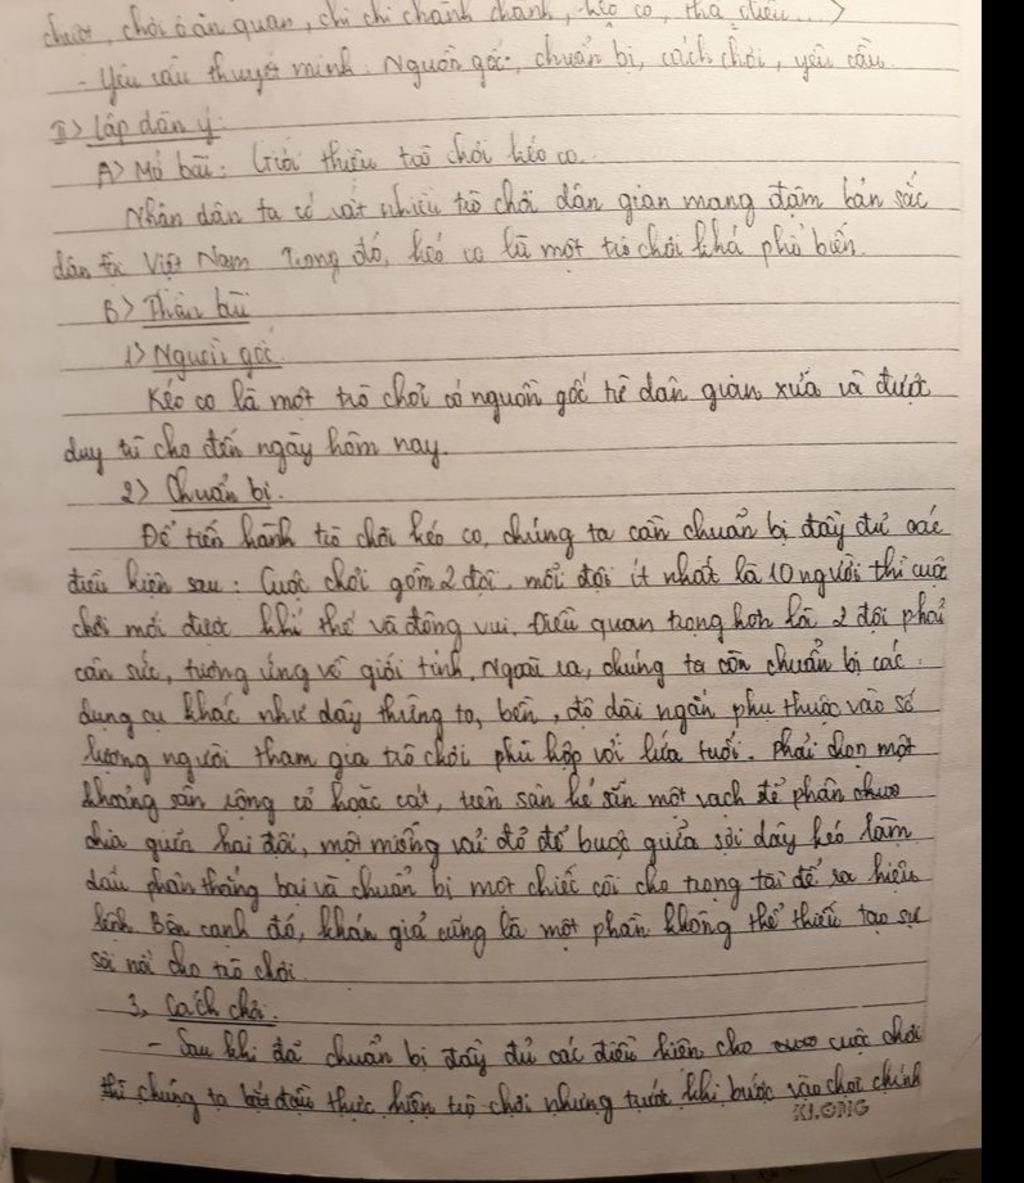 chuột, chơi ô ăn quan, chi chi chành chành, kéo co, thả diều...>
- Yêu cầu thuyết minh: Nguồn gốc, chuẩn bị, cách chơi, yêu cầu.
II> Lập dàn ý:
A> Mở bài: Giới thiệu trò chơi kéo co.
Nhân dân ta có rất nhiều trò chơi dân gian mang đậm bản sắc
dân tộc Việt Nam Trong đó, kéo co là một trò chơi khá phổ biến.
B> Thân bài
1> Nguồn gốc.
Kéo co là một trò chơi có nguồn gốc từ dân gian xưa và được
duy trì cho đến ngày hôm nay.
2> Chuẩn bị.
Để tiến hành trò chơi kéo co, chúng ta cần chuẩn bị đầy đủ các
điều kiện sau: Cuộc chơi gồm 2 đội, mỗi đội ít nhất là 10 người thì cuộc
chơi mới được khí thế và đông vui. Điều quan trọng hơn là 2 đội phải
cân sức, tương ứng về giới tính. Ngoài ra, chúng ta còn chuẩn bị các
dụng cụ khác như dây thừng to, bền, độ dài ngắn phụ thuộc vào số
lượng người tham gia trò chơi phù hợp với lứa tuổi. Phải chọn một
khoảng sân rộng cỏ hoặc cát, trên sân kẻ sẵn một vạch để phân
chia giữa hai đội, một miếng vải đỏ để buộc giữa sợi dây kéo làm
dấu phân thắng bại và chuẩn bị một chiếc còi cho trọng tài để ra hiệu
lệnh Bên cạnh đó, khán giả cũng là một phần không thể thiếu tạo sự
sôi nổi cho trò chơi.
3, Cách chơi.
- Sau khi đã chuẩn bị đầy đủ các điều kiện cho cuộc chơi
thì chúng ta bắt đầu thực hiện trò chơi nhưng trước khi bước vào chơi chính
KLONG